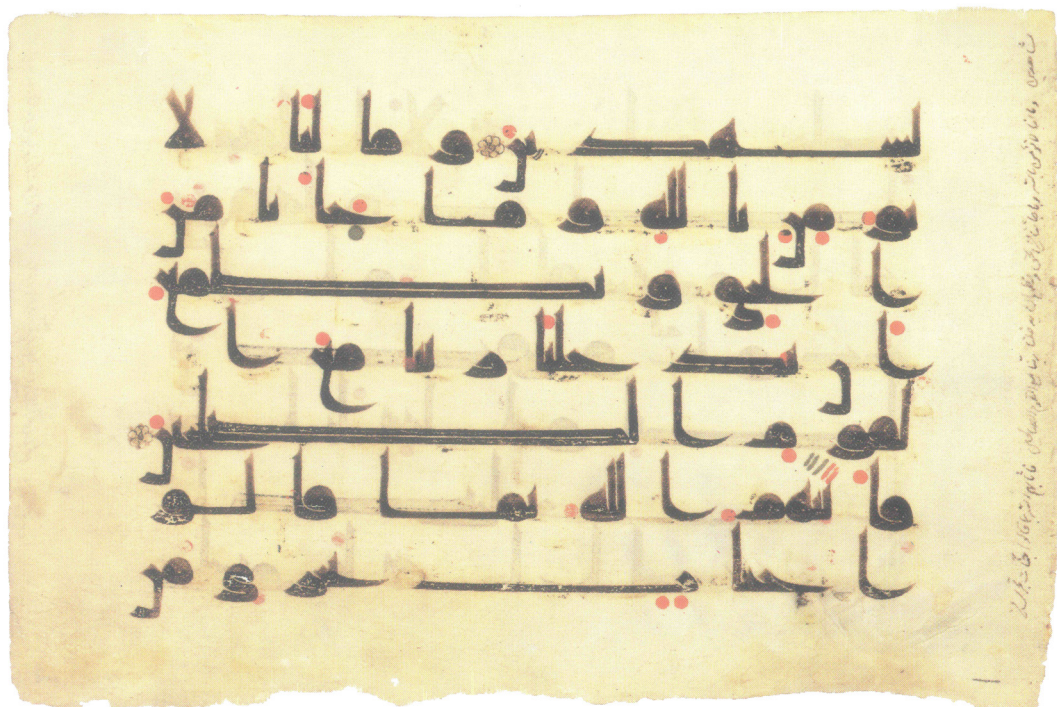 لشهدين وما لنا لا
نومن بالله وما جانا من
الحق ونطمع
ان يدخلنا ربنا مع ا
لقوم الصلحين
فاثبهم الله بما قالو
ا جنت تجري من